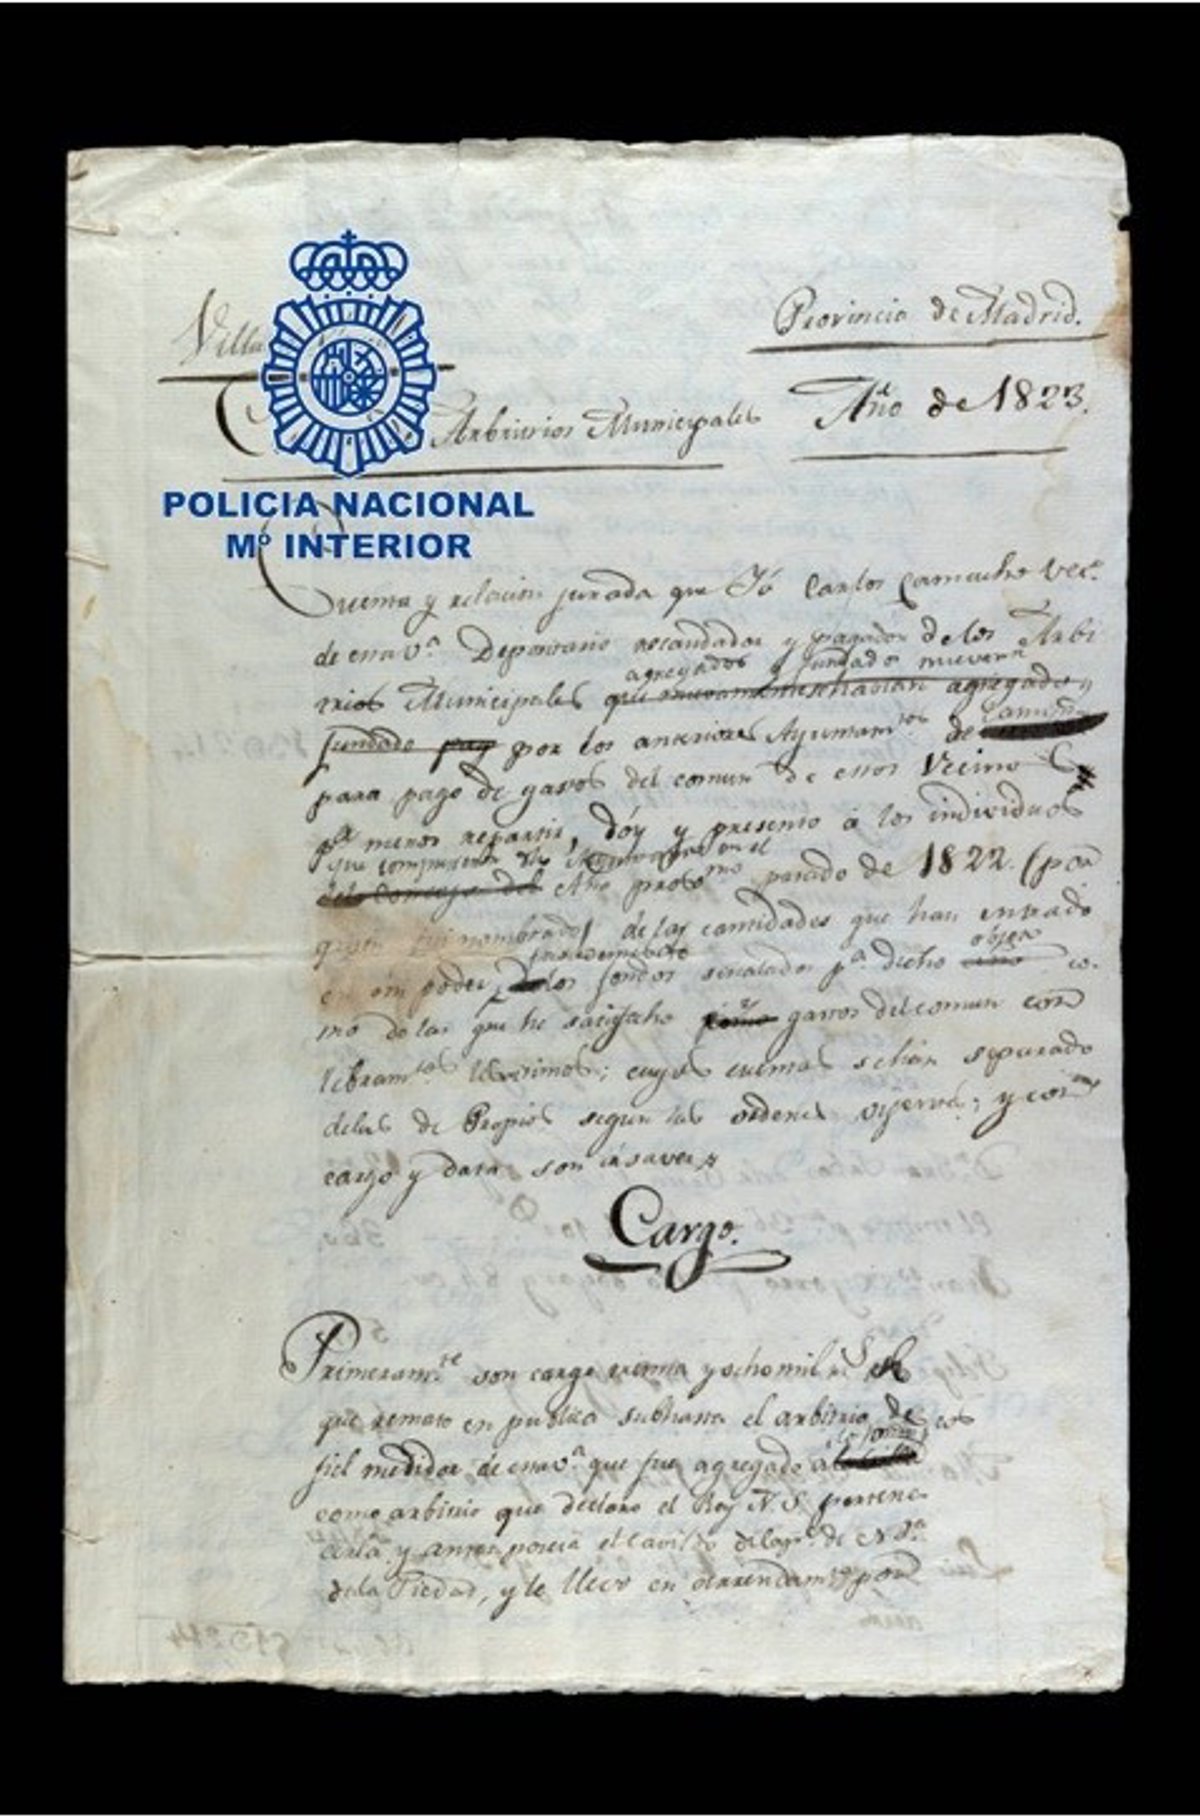 Villa
Provincia de Madrid.
Arbitrios Municipales
Año de 1823.
POLICIA NACIONAL
Mº INTERIOR
Cuenta y relacion jurada que Yó Carlos Camacho Vecº
de esta vª Depositario recaudador y pagador de los Arbi
agregados y fundados nuevamte
trios Municipales que nuevamente habian agregado y
fundado por los anteriores Ayuntamtos de
para pago de gastos del comun de estos Vecinos
pª menos repartir, dóy y presento á los individuos
que en el
del Concejo del Año procsmo pasado de 1822. (por
quien fui nombrado) de las cantidades que han entrado
objeto
en mi poder, los fondos señalados pª dicho co-
mo de las que he satisfecho gastos del comun con
libramtos lexitimos; cuyas cuentas se han separado
de las de Propios segun las ordenes vijentes; y con
cargo y data son á saver,,
Cargo.
Primeramte son cargo treinta y ocho mil rs
que remató en publica subhasta el arbitrio de
fiel medidor de esta vª que fue agregado á
como arbitrio que declaró el Rey N. S. pertene-
cerla y antes poseia el Cavildo de la de Nª Sª
de la Piedad, y le llevó en arrendamto por